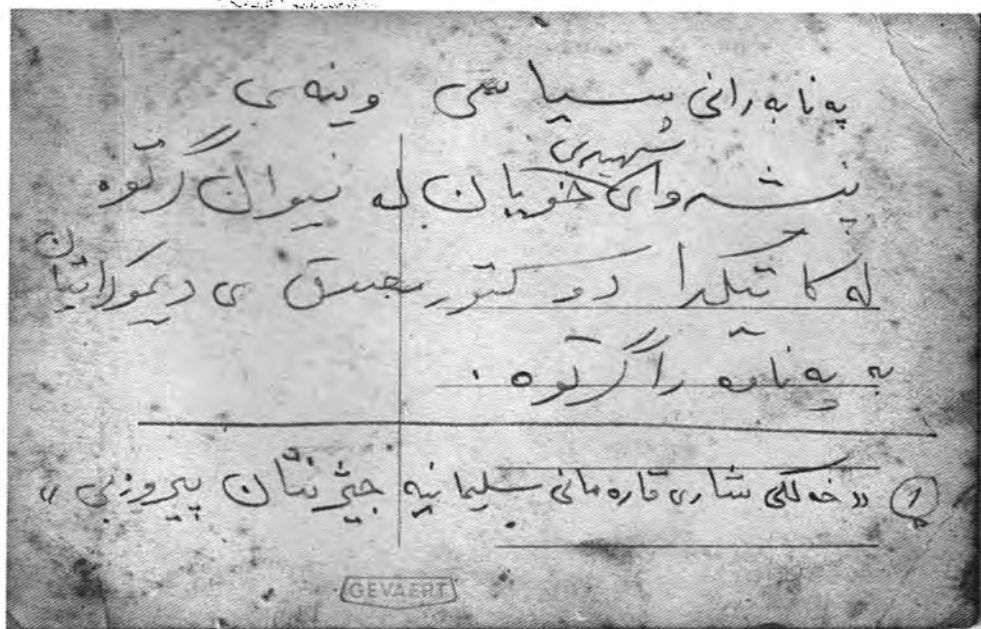 په نابه رانی سیاسی وینه ی
شهیدی
پێشه وای خۆیان له نیوان گرتوه
له کاتیکدا دوکتور مصدق ی دیموکراتیان
به په نا وه راگرتوه .
① «خه لکی شاری قاره مانی سلیمانیه جێژنتان پیروز بی»
GEVAERT